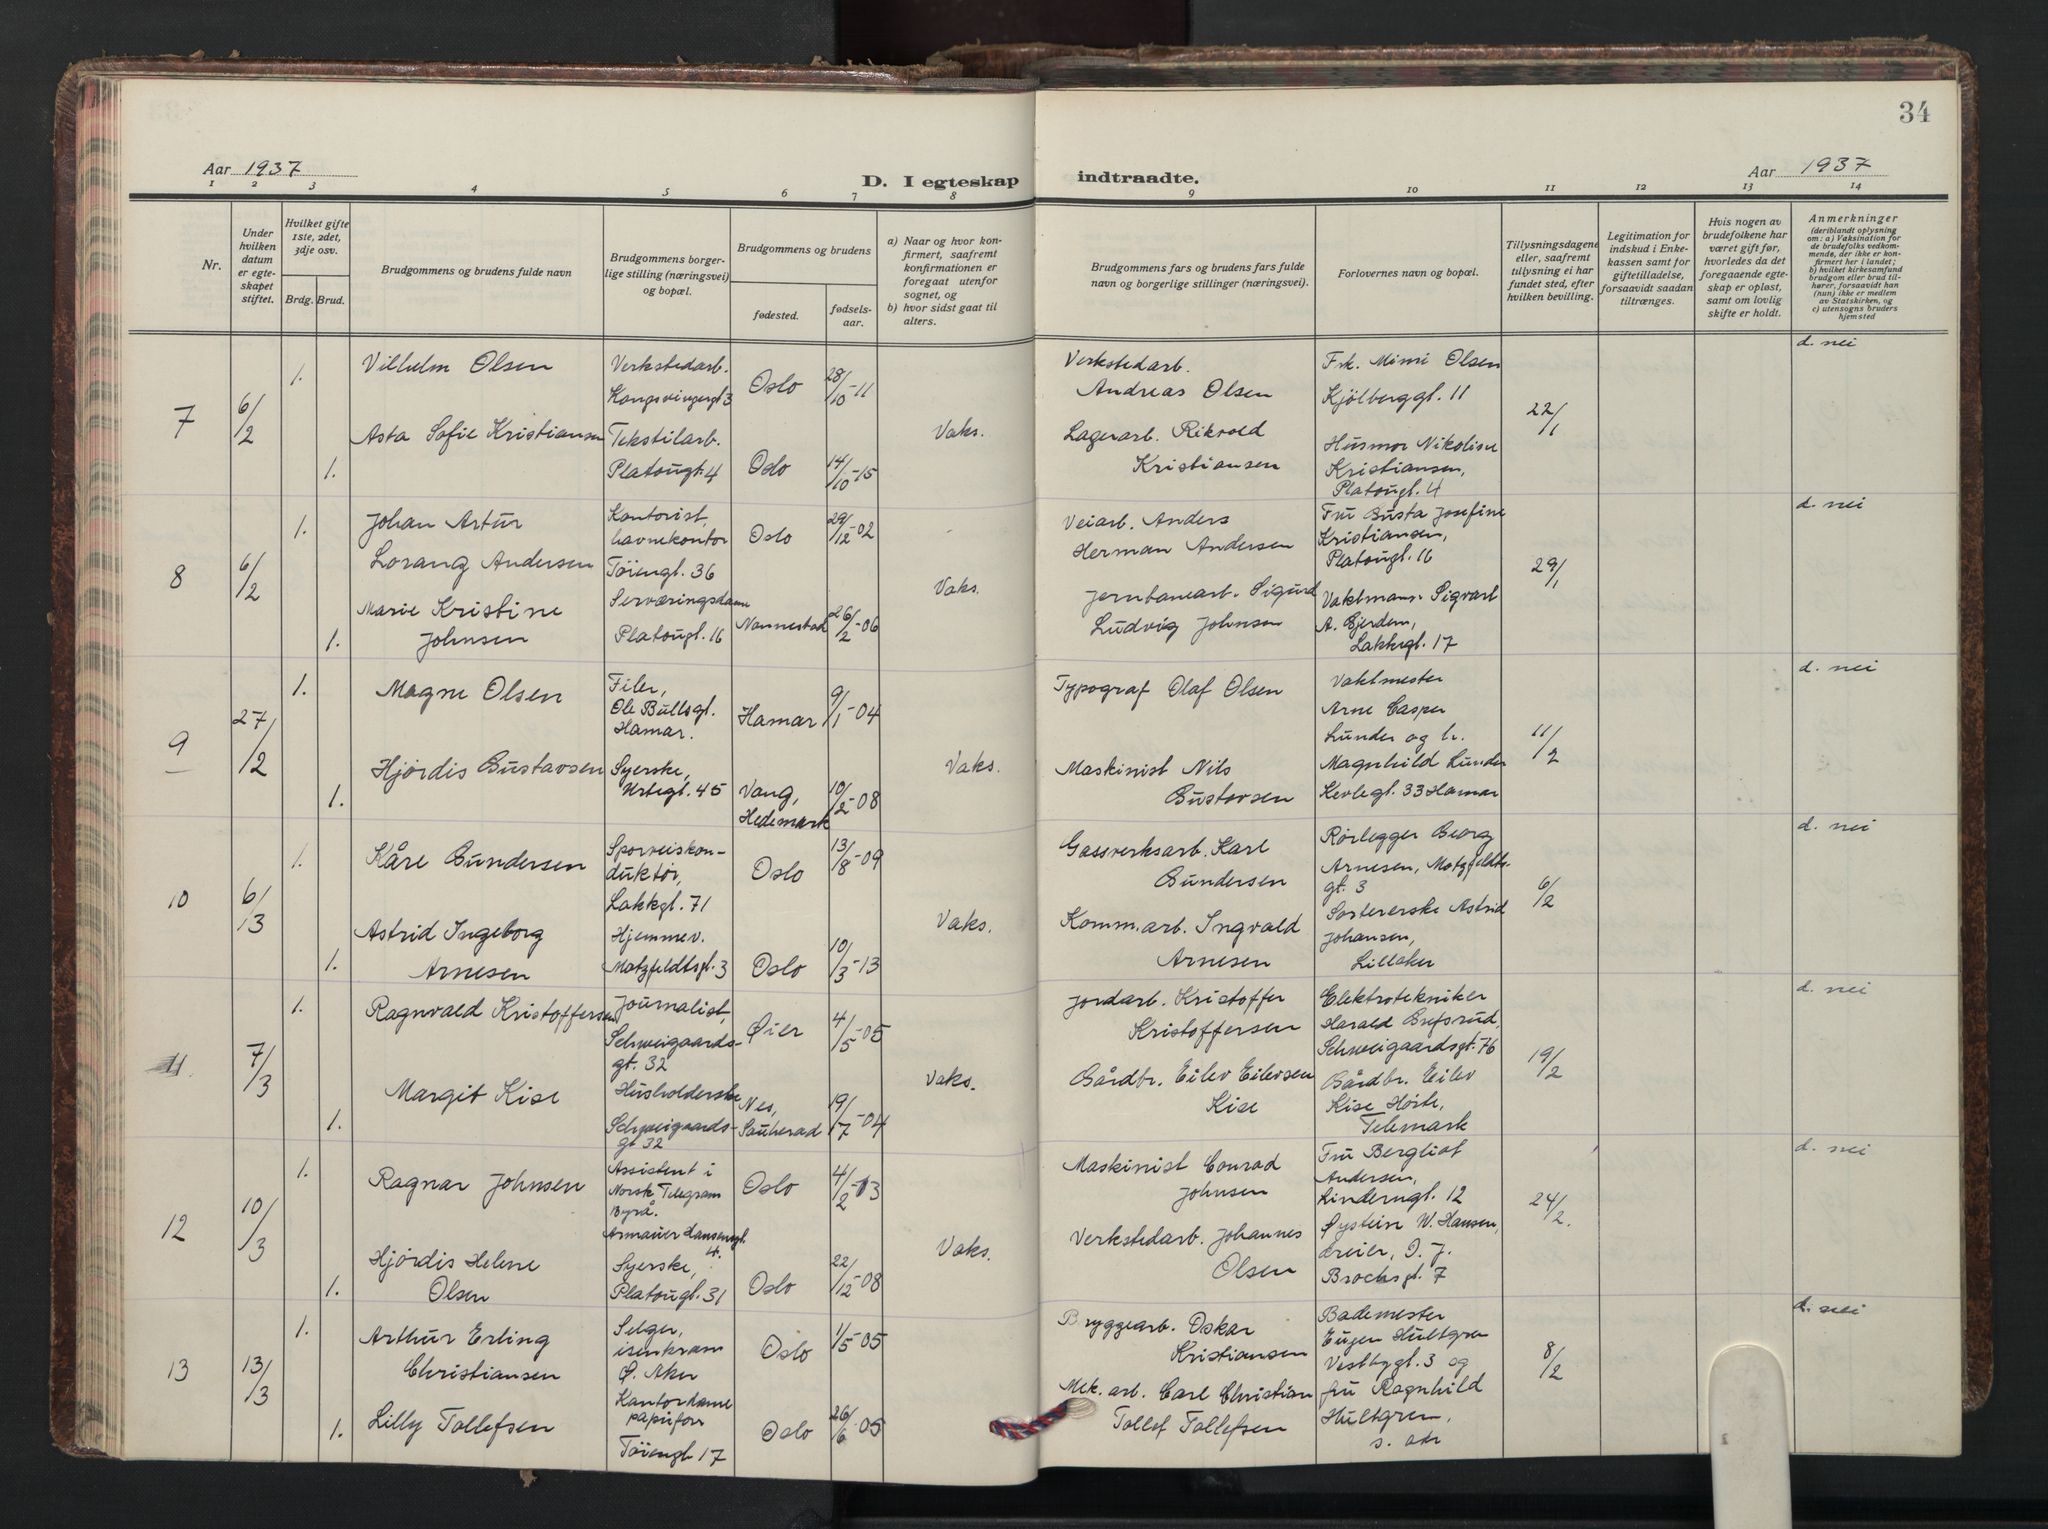 34
Aar 1937
D. I egteskap indtraadte.
Aar 1937
1 2 3 4 5 6 7 8 9 10 11 12 13 14
Nr.
Under hvilken datum er egteskapet stiftet.
Hvilket gifte 1ste, 2det, 3dje osv.
Brdg. Brud.
Brudgommens og brudens fulde navn
Brudgommens borgerlige stilling (næringsvei) og bopæl.
Brudgommens og brudens
fødested.
fødselsaar.
a) Naar og hvor konfirmert, saafremt konfirmationen er foregaat utenfor sognet, og
b) hvor sidst gaat til alters.
Brudgommens fars og brudens fars fulde navn og borgerlige stillinger (næringsvei).
Forlovernes navn og bopæl.
Tillysningsdagene eller, saafremt tillysning ei har fundet sted, efter hvilken bevilling.
Legitimation for indskud i Enkekassen samt for giftetilladelse, forsaavidt saadan tiltrænges.
Hvis nogen av brudefolkene har været gift før, hvorledes da det foregaaende egteskap er opløst, samt om lovlig skifte er holdt.
Anmerkninger
(deriblandt oplysning om: a) Vaksination for de brudefolks vedkommende, der ikke er konfirmert her i landet;
b) hvilket kirkesamfund brudgom eller brud tilhører, forsaavidt han (hun) ikke er medlem av Statskirken, og
c) utensogns bruders hjemsted
7
6/2
1.
Vilhelm Olsen
Verkstedarb.
Kongsvingergt 3
Oslo
28/10-11
Verkstedarb.
Andreas Olsen
Frk. Mimi Olsen
Kjölberggt. 11
22/1
d. nei
1.
Asta Sofie Kristiansen
Tekstilarb.
Platougt. 4
Oslo
14/10-15
Vaks.
Lagerarb. Rikvold
Kristiansen
Husmor Nikoline
Kristiansen,
Platougt. 4
8
6/2
1.
Johan Artur
Lorang Andersen
Kontorist,
havnekontor
Töiengt. 36
Oslo
29/12-02
Veiarb. Anders
Herman Andersen
Fru Gusta Josefine
Kristiansen,
Platougt. 16
29/1
d. nei
1.
Marie Kristine
Johnsen
Serveringsdame
Platougt. 16
Nannestad
26/2-06
Vaks.
Jernbanearb. Sigurd
Ludvig Johnsen
Vaktman. Sigvart
A. Gjerdem,
Lakkegt. 17
9
27/2
1.
Magne Olsen
Filer,
Ole Bullsgt.
Hamar.
Hamar
9/1-04
Typograf Olaf Olsen
Vaktmester
Arne Casper
Lunder og h.
11/2
d. nei
1.
Hjördis Gustavsen
Syerske,
Urtegt. 45
Vang,
Hedemark
10/2-08
Vaks.
Maskinist Nils
Gustavsen
Magnhild Lunder
33 Hamar
10
6/3
1.
Kåre Gundersen
Sporveiskonduktör,
Lakkgt. 71
Oslo
13/8-09
Gassverksarb. Karl
Gundersen
Rörlegger Georg
Arnesen, Motzfeldtsgt. 3
6/2
d. nei
1.
Astrid Ingeborg
Arnesen
Hjemmev.
Motzfeldtsgt. 3
Oslo
10/3-13
Vaks.
Komm.arb. Ingvald
Arnesen
Sortererske Astrid
Johansen,
Lilleaker
11
7/3
1.
Ragnvald Kristoffersen
Journalist,
Schweigaardsgt. 32
Øier
4/5-05
Jordarb. Kristoffer
Kristoffersen
Elektrotekniker
Harald
Schweigaardsgt. 76
19/2
d. nei
1.
Margit Kise
Husholderske
Schweigaardsgt 32
Nes,
Sauherad
19/17-04
Vaks.
Gårdbr. Eilev Eilevsen
Kise
Gårdbr. Eilev
Kise Hörte,
Telemark
12
10/3
1.
Ragnar Johnsen
Assistent i
Norsk Telegram
Byrå.
Armauer Hansensgt.
4.
Oslo
4/2-03
Maskinist Conrad
Johnsen
Fru Bergliot
Andersen,
Linderngt. 12
24/2.
d. nei
1.
Hjördis Helene
Olsen
Syerske,
Platougt. 31
Oslo
22/12-08
Vaks.
Verkstedarb. Johannes
Olsen
Øystein W. Hansen,
dreier, O. J.
Brochsgt. 7
13
13/3
1.
Arthur Erling
Christiansen
Selger,
isenkram
Ø. Aker
Oslo
1/5-05
Bryggearb. Oskar
Kristiansen
Bademester
Eugen Hultgren
Vestbygt. 3 og
8/2
d. nei
1.
Lilly Tollefsen
Kontordame
papirforr
Töiengt. 17
Oslo
26/6-05
Mek. arb. Carl Christian
Tollef Tollefsen
fru Ragnhild
Hultgren,
s. adr